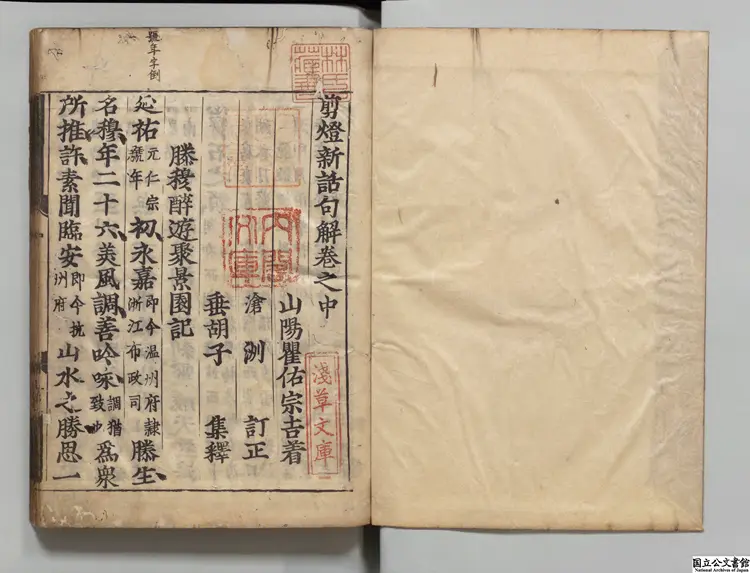 林氏藏書
號年字倒
剪燈新話句解卷之中
山陽瞿佑宗吉着
滄洲 訂正
垂胡子 集釋
滕穆醉遊聚景園記
延祐元仁宗號年初永嘉即今温州府隷浙江布政司滕生
名穆年二十六美風調善吟咏調猶致也爲衆
所推許素聞臨安即今抗州府山水之勝思一
淺草文庫
國立公文書館
National Archives of Japan